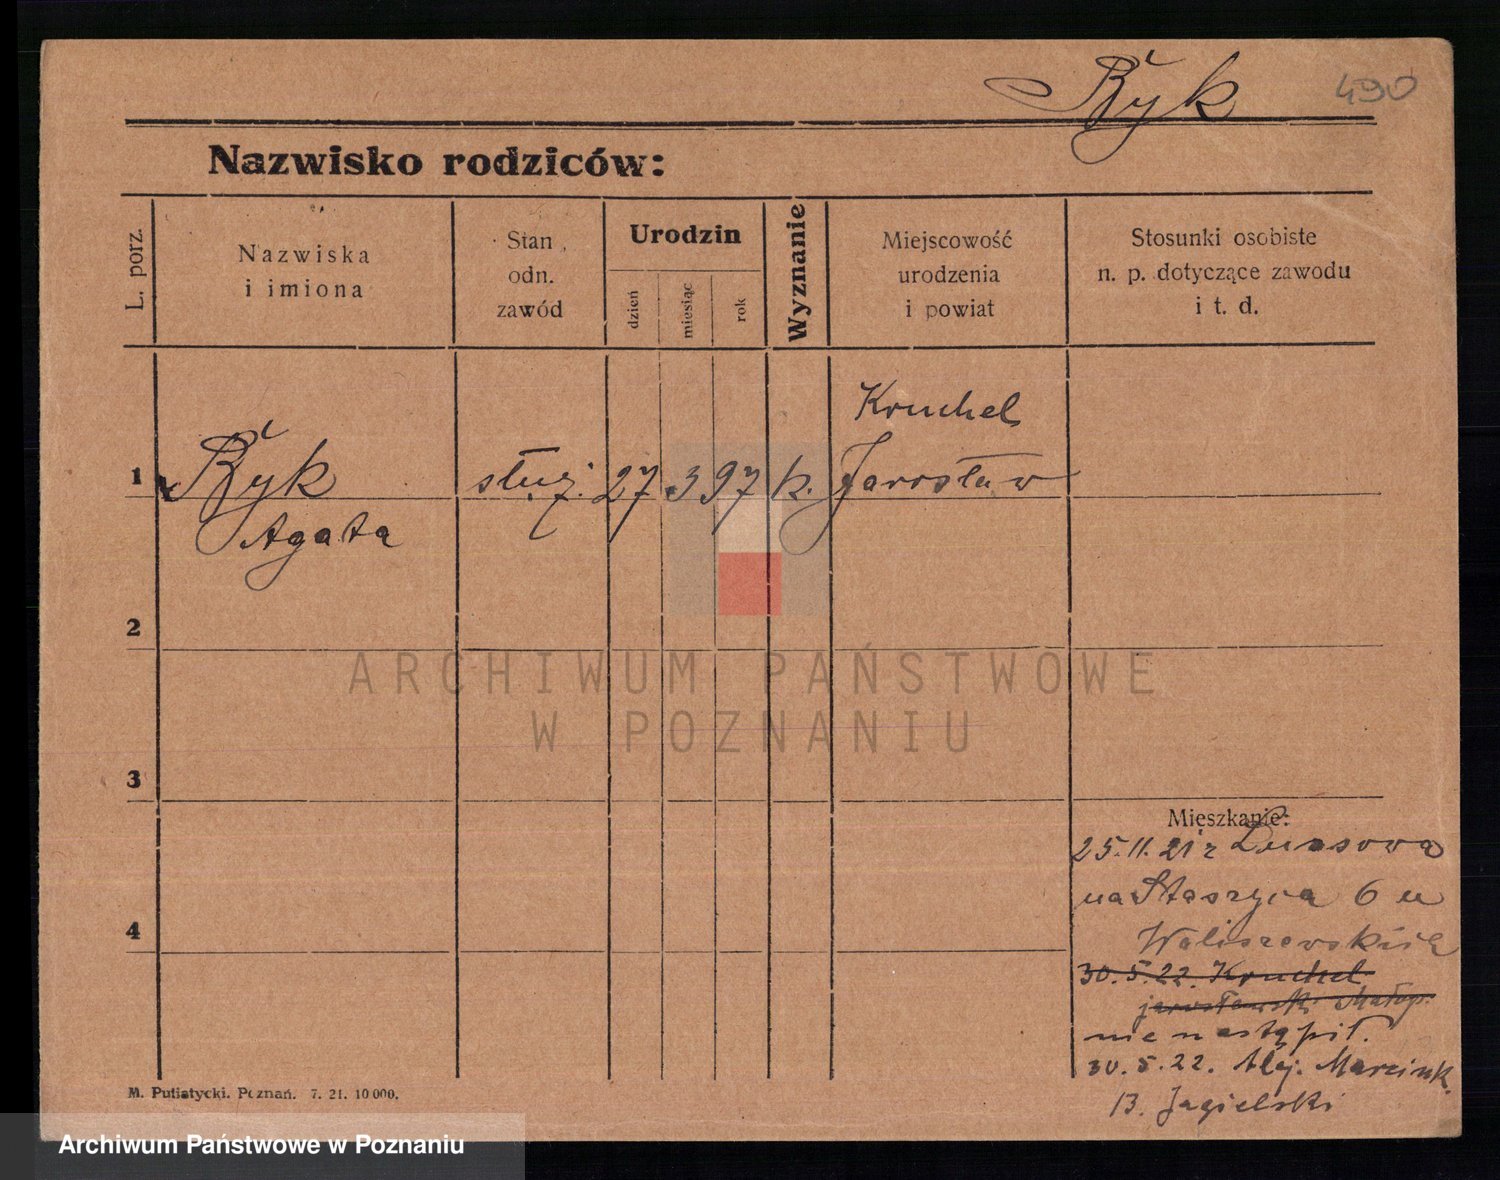 Ryk
490
Nazwisko rodziców:
L. porz.
Nazwiska
i imiona
Stan
odn.
zawód
Urodzin
dzień
miesiąc
rok
Wyznanie
Miejscowość
urodzenia
i powiat
Stosunki osobiste
n. p. dotyczące zawodu
i t. d.
1
Ryk
Agata
służ.
27
3
97
k.
Kruchel
Jarosław
2
3
4
Mieszkanie:
25.11.21 z
na Staszyca 6 u
Waliszewskich
30.5.22. Kruchel
jarosławski Małop.
nie nastąpił.
30.5.22. Alej. Marcink.
13. Jagielski
M. Putiatycki. Poznań. 7. 21. 10 000.
ARCHIWUM PAŃSTWOWE
W POZNANIU
Archiwum Państwowe w Poznaniu